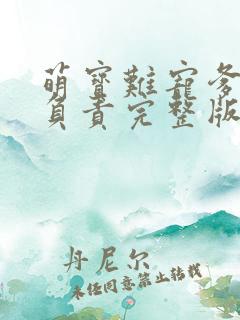 萌寶難寵爹
負責完整版
丹尼尔
未经同意禁止转载